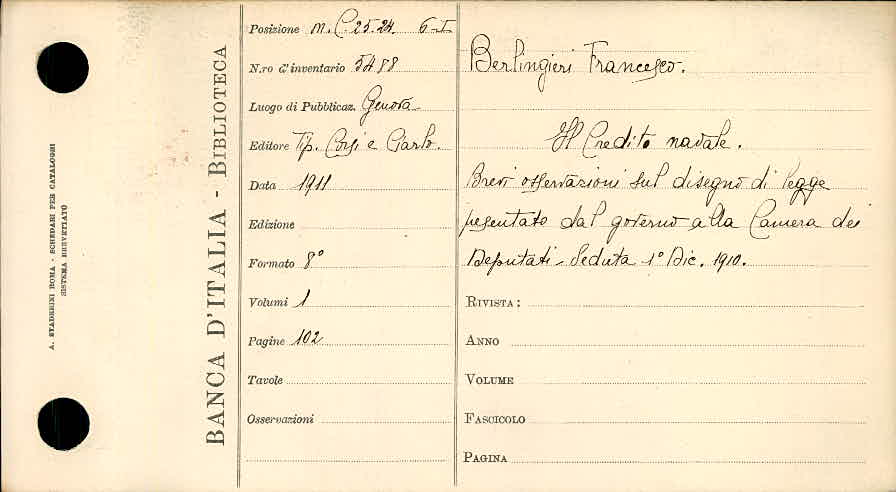 A. STADERINI ROMA - SCHEDARI PER CATALOGHI
SISTEMA BREVETTATO
BANCA D'ITALIA - BIBLIOTECA
Posizione m. C. 25.24. 6-I
N.ro d'inventario 5488
Luogo di Pubblicaz. Genova
Editore Tip. Corsi e Ciarlo.
Data 1911
Edizione
Formato 8°
Volumi 1
Pagine 102
Tavole
Osservazioni
Berlingieri Francesco.
Il Credito navale.
Brevi osservazioni sul disegno di legge
pesentato dal governo alla Camera dei
Deputati - Seduta 1° Dic. 1910.
RIVISTA:
ANNO
VOLUME
FASCICOLO
PAGINA